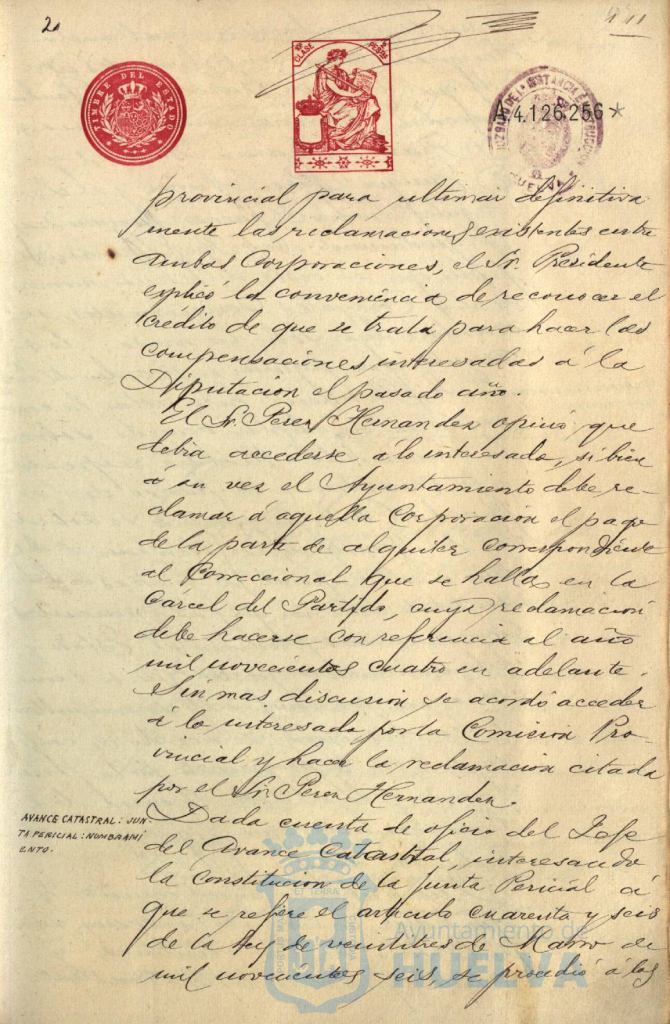 2
TIMBRE DEL ESTADO
CLASE
PESETAS
A.4.126.256*
HUELVA
provincial para ultimar definitiva
mente las reclamaciones existentes entre
ambas Corporaciones, el Sr. Presidente
explicó la conveniencia de reconocer el
crédito de que se trata para hacer las
compensaciones interesadas á la
Diputacion el pasado año.
El Sr. Perez Hernandez opinó que
debia accederse á lo interesado, si bien
á su vez el Ayuntamiento debe re-
clamar á aquella Corporacion el pago
de la parte de alquiler correspondiente
al Correccional que se halla en la
Cárcel del Partido, cuya reclamacion
debe hacerse con referencia al año
mil novecientos cuatro en adelante.
Sin mas discusion se acordó acceder
á lo interesado por la Comision Pro-
vincial y hacer la reclamacion citada
por el Sr. Perez Hernandez.
AVANCE CATASTRAL: JUN
TA PERICIAL: NOMBRAMI
ENTO.
Dada cuenta de oficio del Jefe
del Avance Catastral, interesando
la Constitucion de la Junta Pericial á
que se refiere el articulo cuarenta y seis
de la ley de veintitres de Marzo de
mil novecientos seis, se procedió á los
Ayuntamiento de
HUELVA